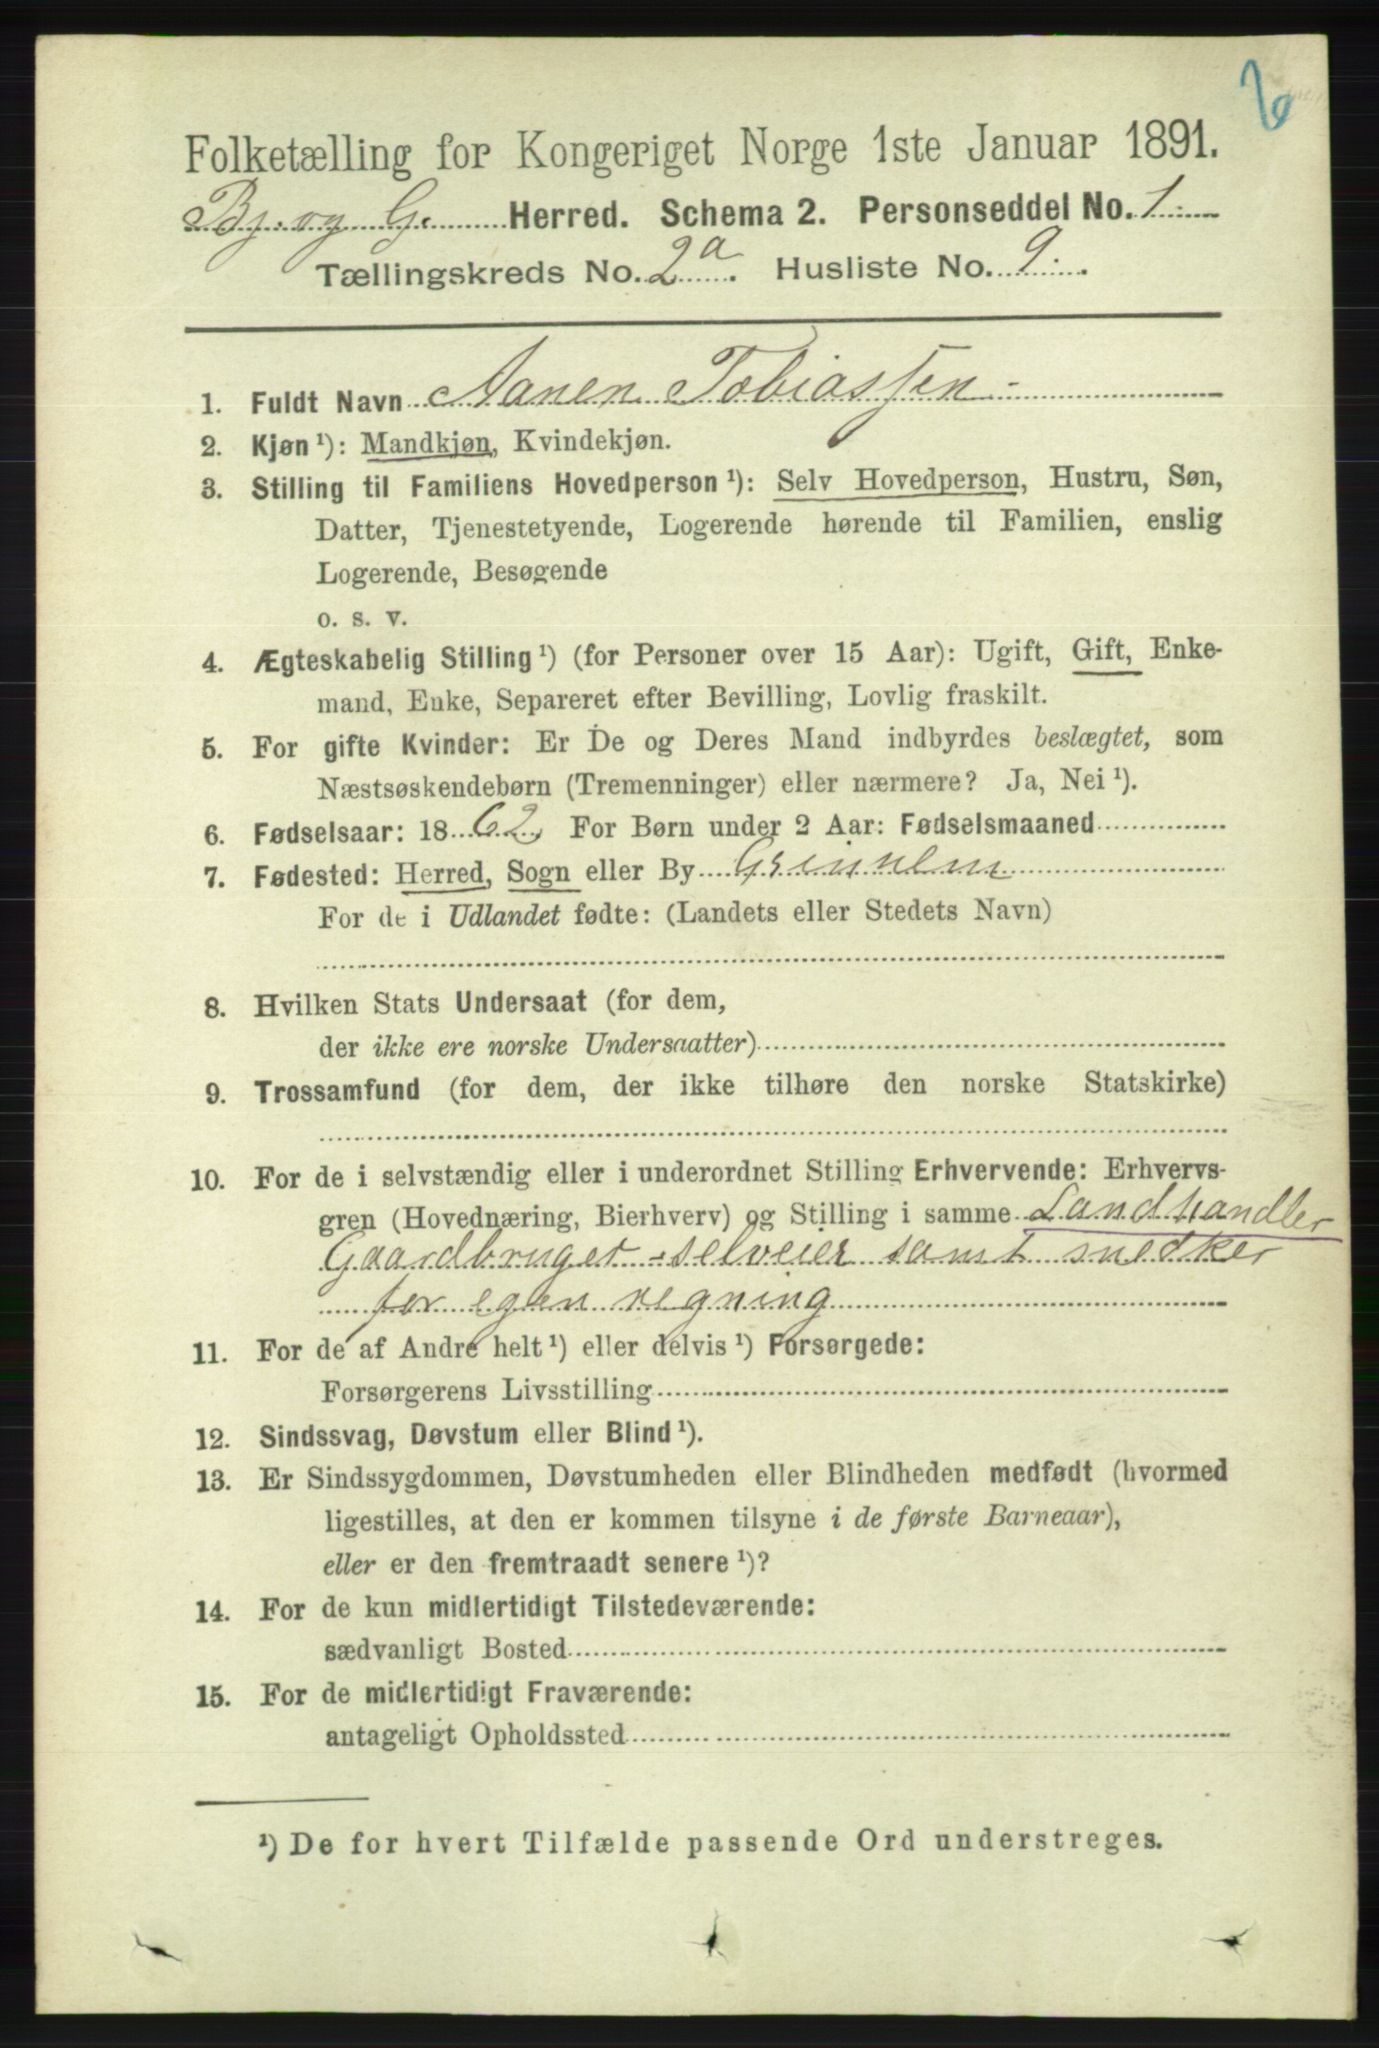 6
Folketælling for Kongeriget Norge 1ste Januar 1891.
Bj. og G. Herred. Schema 2. Personseddel No. 1.
Tællingskreds No. 2a. Husliste No. 9.
1. Fuldt Navn Aanen Tobiassen
2. Kjøn ¹): Mandkjøn, Kvindekjøn.
3. Stilling til Familiens Hovedperson ¹): Selv Hovedperson, Hustru, Søn,
Datter, Tjenestetyende, Logerende hørende til Familien, enslig
Logerende, Besøgende
o. s. v.
4. Ægteskabelig Stilling ¹) (for Personer over 15 Aar): Ugift, Gift, Enke-
mand, Enke, Separeret efter Bevilling, Lovlig fraskilt.
5. For gifte Kvinder: Er De og Deres Mand indbyrdes beslægtet, som
Næstsøskendebørn (Tremenninger) eller nærmere? Ja, Nei ¹).
6. Fødselsaar: 1862. For Børn under 2 Aar: Fødselsmaaned
7. Fødested: Herred, Sogn eller By Grinnem
For de i Udlandet fødte: (Landets eller Stedets Navn)
8. Hvilken Stats Undersaat (for dem,
der ikke ere norske Undersaatter)
9. Trossamfund (for dem, der ikke tilhøre den norske Statskirke)
10. For de i selvstændig eller i underordnet Stilling Erhvervende: Erhvervs-
gren (Hovednæring, Bierhverv) og Stilling i samme Landhandler
Gaardbruger - selveier samt snedker
for egen regning
11. For de af Andre helt ¹) eller delvis ¹) Forsørgede:
Forsørgerens Livsstilling
12. Sindssvag, Døvstum eller Blind ¹).
13. Er Sindssygdommen, Døvstumheden eller Blindheden medfødt (hvormed
ligestilles, at den er kommen tilsyne i de første Barneaar),
eller er den fremtraadt senere ¹)?
14. For de kun midlertidigt Tilstedeværende:
sædvanligt Bosted
15. For de midlertidigt Fraværende:
antageligt Opholdssted
¹) De for hvert Tilfælde passende Ord understreges.